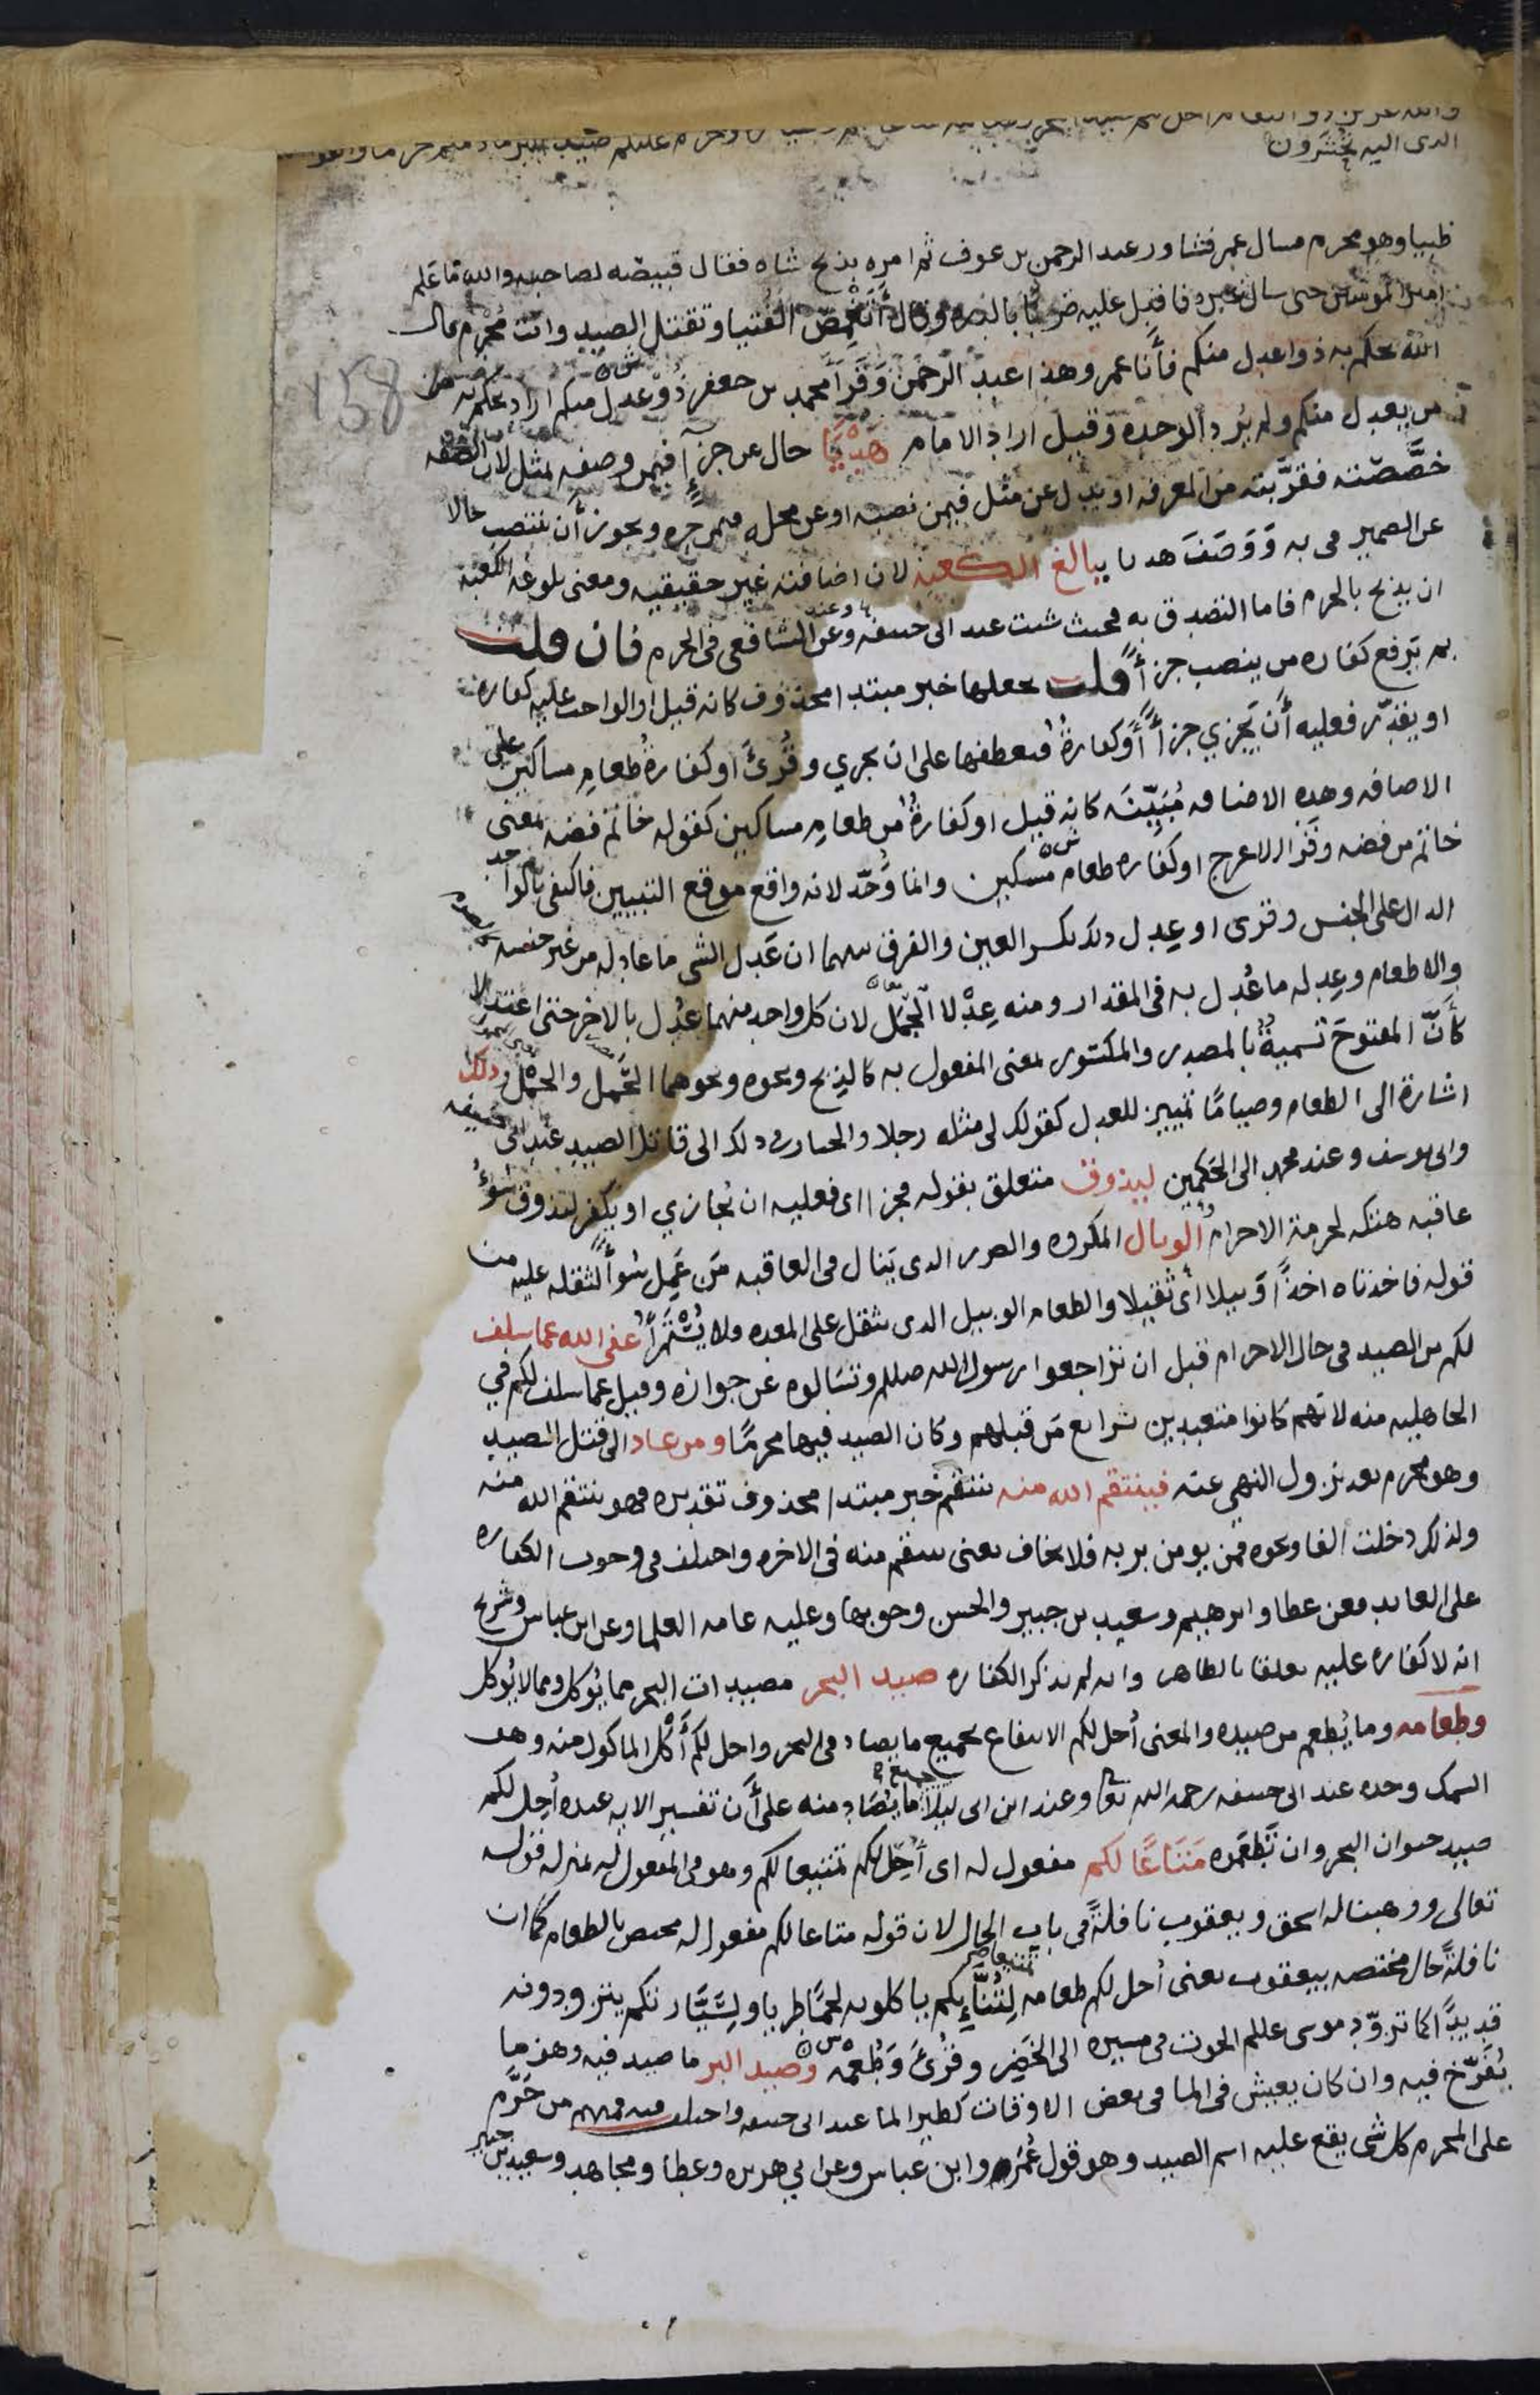 والله عزيز ذو انتقام احل لكم صيد البحر وحرم عليكم صيد البر ما دمتم حرما واتقوا
الدى اليه تحْشَرون
ظبيا وهو محرم فسال عمر فتشاور عبد الرحمن بن عوف ثم امره بذبح شاه فقال قبيصه لصاحبه والله ما علم
امير المومنين حتى سال غيره فاقبل عليه ضربًا بالدره وقال أتغمص الفتيا وتقتل الصيد وانت مُحْرِم قال
الله يحكم به ذوا عدل منكم فأنا عمر وهذا عبد الرحمن وَقرَأ محمد بن جعفر ذُوْ عدل منكم اراد يحكم به من
من يعدل منكم ولم يُرد الوحده وقيل اراد الامام هَدْيًا حال عن جزآءٍ فيمن وصفه بمثل لان الصفه
خصَّصَته فقرَّبته من المعرفه او بدل عن مثل فيمن نصبه او عن محله فيمن جره ويجوز أن ينتصب حالا
عن الضمير في به وَوَصَفَ هديا ببالغ الكعبة لان اضافته غير حقيقيه ومعنى بلوغه الكعبة
ان يذبح بالحرم فاما التصدق به فحيث شئت عند ابى حنيفه وعن الشافعي في الحرم فان قلت
بم ترفع كفاره من ينصب جزآءً قلت يجعلها خبر مبتدا محذوف كانه قيل او الواجب عليه كفارة
او يقدّر فعليه أن يَجزي جزآءً أوكفارةٌ فيعطفها على ان يجزي وقُرئَ او كفارةُ طعامِ مساكين على
الاضافه وهذه الاضافه مُبَيِّنَه كانه قيل او كفارةٌ من طعامِ مساكين كقوله خاتم فضه بمعنى
خاتم من فضه وقرا الاعرج او كفاره طعام مسكين وانما وُحّد لانه واقع موقع التبيين فاكتفى بالواحد
الدال على الجنس وقرى او عِدل ذلك بكسر العين والفرق بينهما ان عَدل الشى ما عادله من غير جنسه كالصوم
والاطعام وعِدله ما عُدل به في المقدار ومنه عِدْلا الحِمْل لان كل واحد منهما عُدل بالاخر حتى اعتدلا
كأنّ المفتوحَ تسميةٌ بالمصدر والمكسور بمعنى المفعول به كالذبح ونحوه ونحوهما الحَمل والحِمْل وذلك
اشارة الى الطعام وصيامًا تمييز للعدل كقولك لى مثله رجلا والخيار فى ذلك الى قاتل الصيد عند ابى حنيفه
وابى يوسف وعند محمد الى الحَكمين ليذوق متعلق بقوله فجزآء اى فعليه ان يُجازي او يكفر ليذوق سُوءَ
عاقبه هتكه لحرمة الاحرام والوبال المكروه والضرر الدى يَنال في العاقبه مَن عَمِل سُوأً لثقله عليه من
قوله فاخذناه اخذًا وَبيلا أى ثقيلا والطعام الوبيل الدى يثقل على المعده ولا يُسْتَمْرأُ عفى الله عما سلف
لكم من الصيد فى حال الاحرام قبل ان تراجعوا رسول الله صللم وتسَالوه عن جوازه وقيل عما سلف لكم في
الجاهليه منه لانهم كانوا متعبدين بشرايع مَن قبلهم وكان الصيد فيها محرمًا ومن عاد الى قتل الصيد
وهو محرم بعد نزول النهي عنه فينتقم الله منه ينتقم خبر مبتدا محذوف تقديره فهو ينتقم الله منه
ولذلك دخلت الفا ونحوه فمن يومن بربه فلا يخاف يعنى ينتقم منه فى الاخره واختلف في وجوب الكفاره
على العايد فعن عطا وابرهيم وسعيد بن جبير والحسن وجوبها وعليه عامه العلما وعن ابن عباس وشريح
انه لا كفاره عليه تعلقا بالظاهر وانه لم يذكر الكفاره صيد البحر مصيدات البحر مما يُوكل ومما لا يُوكل
وطعامه وما يُطعم من صيده والمعنى أحل لكم الانتفاع بجميع ما يصاد في البحر واحل لكم أَكْل الماكول منه وهو
السمك وحده عند ابى حنيفه رحمه الله تعا وعند ابن ابى ليلا جميع ما يُصَاد منه على أن تفسير الايه عنده أحل لكم
صيد حيوان البحر وان تَطعَموه مَتَاعًا لكم مفعول له اى أحل لكم تمتيعا لكم وهو في المفعول له بمنزله قوله
تعالى ووهبنا له اسحق ويعقوب نافلةً في باب الحال لان قوله متاعا لكم مفعول له مختص بالطعام كما ان
نافلةً حال مختصه بيعقوب يعنى أحل لكم طعامه تمتيعا لِتُنَّآئِكم ياكلونه لحمًا طريا ولِسَيَّارتكم يتزودونه
قديدًا كما تزوّد موسى عللم الحوت في مسيره الى الخَضِر وقُرئَ وَطُعْمُه وصيد البر ما صيد فيه وهو ما
يُفَرّخ فيه وان كان يعيش فى الما فى بعض الاوقات كطير الما عند ابى حنيفه واختلف فيه فمنهم من حَرَّم
على المحرم كل شى يقع عليه اسم الصيد وهو قول عُمَر وابن عباس وعن ابي هريره وعطا ومجاهد وسعيد بن جبير
158